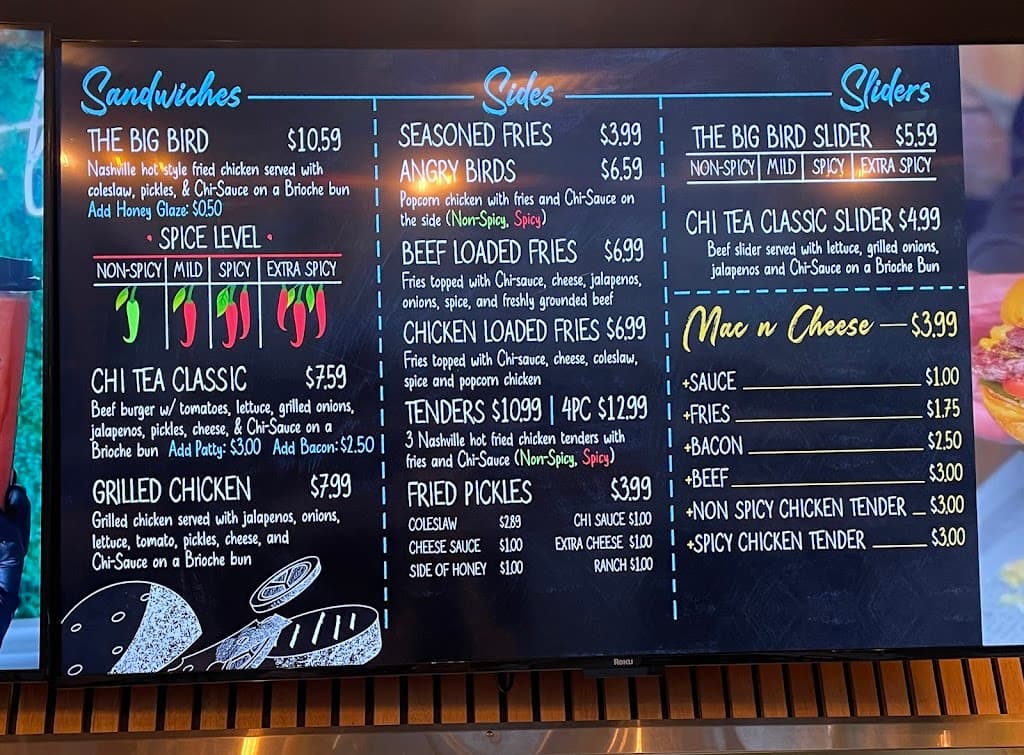 Sandwiches
THE BIG BIRD $10.59
Nashville hot style fried chicken served with
coleslaw, pickles, & Chi-Sauce on a Brioche bun
Add Honey Glaze: $0.50
• SPICE LEVEL •
NON-SPICY MILD SPICY EXTRA SPICY
CHI TEA CLASSIC $7.59
Beef burger w/ tomatoes, lettuce, grilled onions,
jalapenos, pickles, cheese, & Chi-Sauce on a
Brioche bun Add Patty: $3.00 Add Bacon: $2.50
GRILLED CHICKEN $7.99
Grilled chicken served with jalapenos, onions,
lettuce, tomato, pickles, cheese, and
Chi-Sauce on a Brioche bun
Sides
SEASONED FRIES $3.99
ANGRY BIRDS $6.59
Popcorn chicken with fries and Chi-Sauce on
the side (Non-Spicy, Spicy)
BEEF LOADED FRIES $6.99
Fries topped with Chi-sauce, cheese, jalapenos,
onions, spice, and freshly grounded beef
CHICKEN LOADED FRIES $6.99
Fries topped with Chi-sauce, cheese, coleslaw,
spice and popcorn chicken
TENDERS $10.99 | 4PC $12.99
3 Nashville hot fried chicken tenders with
fries and Chi-Sauce (Non-Spicy, Spicy)
FRIED PICKLES $3.99
COLESLAW $2.89 CHI SAUCE $1.00
CHEESE SAUCE $1.00 EXTRA CHEESE $1.00
SIDE OF HONEY $1.00 RANCH $1.00
Sliders
THE BIG BIRD SLIDER $5.59
NON-SPICY MILD SPICY EXTRA SPICY
CHI TEA CLASSIC SLIDER $4.99
Beef slider served with lettuce, grilled onions,
jalapenos and Chi-Sauce on a Brioche Bun
Mac n Cheese — $3.99
+SAUCE $1.00
+FRIES $1.75
+BACON $2.50
+BEEF $3.00
+NON SPICY CHICKEN TENDER $3.00
+SPICY CHICKEN TENDER $3.00
ROKU